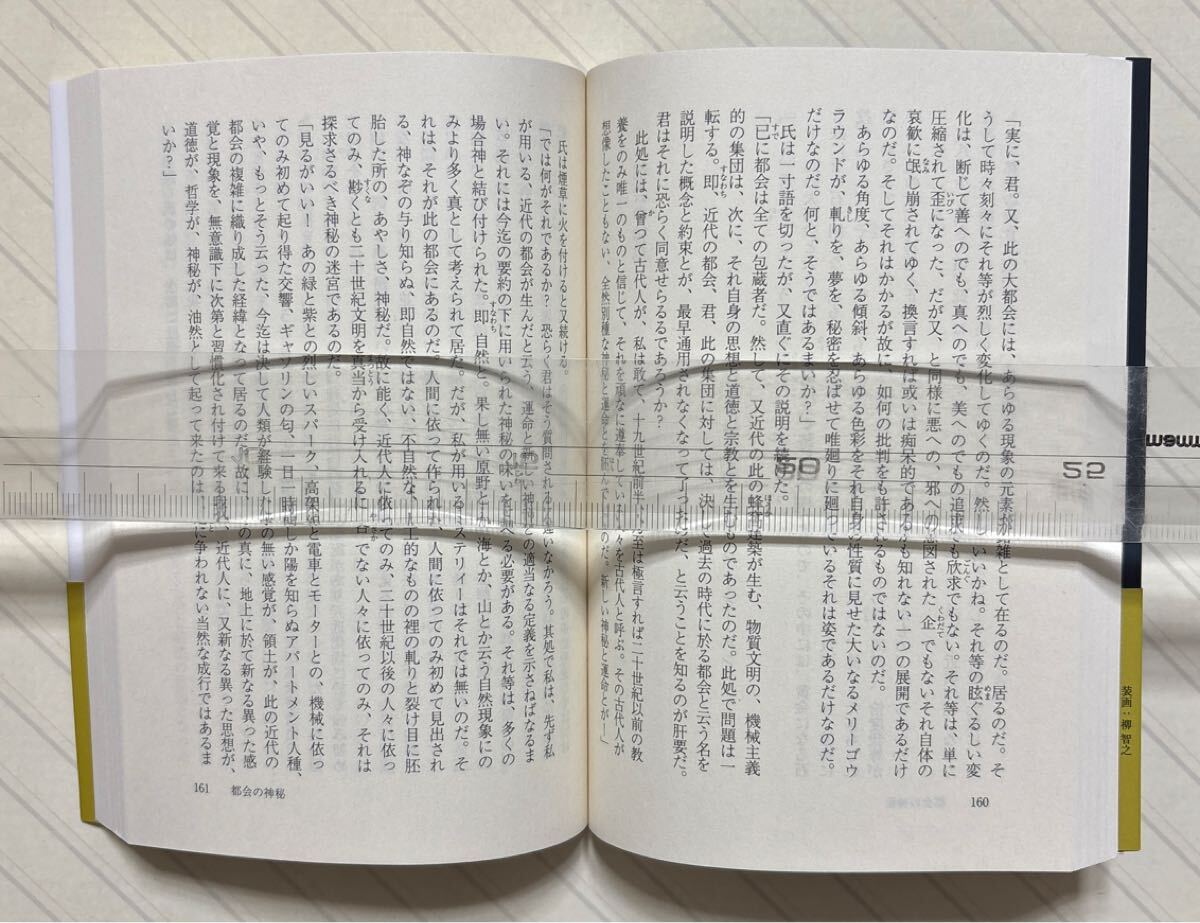 「実に、君。又、此の大都会には、あらゆる現象の元素が 雑として在るのだ。居るのだ。そ
うして時々刻々にそれ等が烈しく変化してゆくのだ。然し いいかね。それ等の眩ぐるしい変
化は、断じて善へのでも、真へのでも、美へのでもの追求でも欣求でもない。それ等は、単に
圧縮されて歪になった、だが又、と同様に悪への、邪への 図された企でもないそれ自体の
哀歓に氓し崩されてゆく、換言すれば或いは痴呆的であるかも知れない一つの展開であるだけ
なのだ。そしてそれはかかるが故に、如何の批判をも許さるるものではないのだ。
あらゆる角度、あらゆる傾斜、あらゆる色彩をそれ自身の性質に見せた大いなるメリーゴウ
ラウンドが、軋りを、夢を、秘密を忍ばせて唯廻りに廻っているそれは姿であるだけなのだ。
だけなのだ。何と、そうではあるまいか？」
氏は一寸語を切ったが、又直ぐにその説明を続けた。
「已に都会は全ての包蔵者だ。然して、又近代の此の蜂窩建築が生む、物質文明の、機械主義
的の集団は、次に、それ自身の思想と道徳と宗教とを生むものであったのだ。此処で問題は一
転する。即、近代の都会、君、此の集団に対しては、決して過去の時代に於る都会と云う名を
説明した概念と約束とが、最早通用されなくなって了ったのだ、と云うことを知るのが肝要だ。
君はそれに恐らく同意せらるるであろうか？
此処には、曾つて古代人が、私は敢て、十九世紀前半 至は極言すれば二十世紀以前の教
養をのみ唯一のものと信じて、それを頑なに遵奉している人々を古代人と呼ぶ。その古代人が
想像したこともない、全然別種な神秘と運命とを孕んで のだ。新しい神秘と運命とが―」
160
氏は煙草に火を付けると又続ける。
「では何がそれであるか？ 恐らく君はそう質問されるに違いなかろう。其処で私は、先ず私
が用いる、近代の都会が生んだと云う、運命と新しい神秘との適当なる定義を示さねばなるま
い。それには今迄の要約の下に用いられた神秘の味いを る必要がある。それ等は、多くの
場合神と結び付けられた。即、自然と。果し無い原野とか、海とか、山とか云う自然現象にの
みより多く真として考えられて居た。だが、私が用いるミステリイーはそれでは無いのだ。そ
れは、それが此の都会にあるのだ。人間に依って作られた、人間に依ってのみ初めて見出され
る、神なぞの与り知らぬ、即自然ではない、不自然な、人工的なものの裡の軋りと裂け目に胚
胎した所の、あやしさ、神秘だ。故に能く、近代人に依ってのみ、二十世紀以後の人々に依っ
てのみ、尠くとも二十世紀文明を真当から受け入れるに でない人々に依ってのみ、それは
探求さるべき神秘の迷宮であるのだ。
「見るがいい！ あの緑と紫との烈しいスパーク、高架線と電車とモーターとの、機械に依っ
てのみ初めて起り得た交響、ギャソリンの匂、一日一時間しか陽を知らぬアパートメント人種、
いや、もっとそう云った、今迄は決して人類が経験し の無い感覚が、領土が、此の近代の
都会の複雑に織り成した経緯となって居るのだ。故に、 の真に、地上に於て新なる異った感
覚と現象を、無意識下に次第と習慣化され付けて来る 、近代人に、又新なる異った思想が、
道徳が、哲学が、神秘が、油然として起って来たのは に争われない当然な成行ではあるま
いか？」
161 都会の神秘
装画：柳 智之
50
52